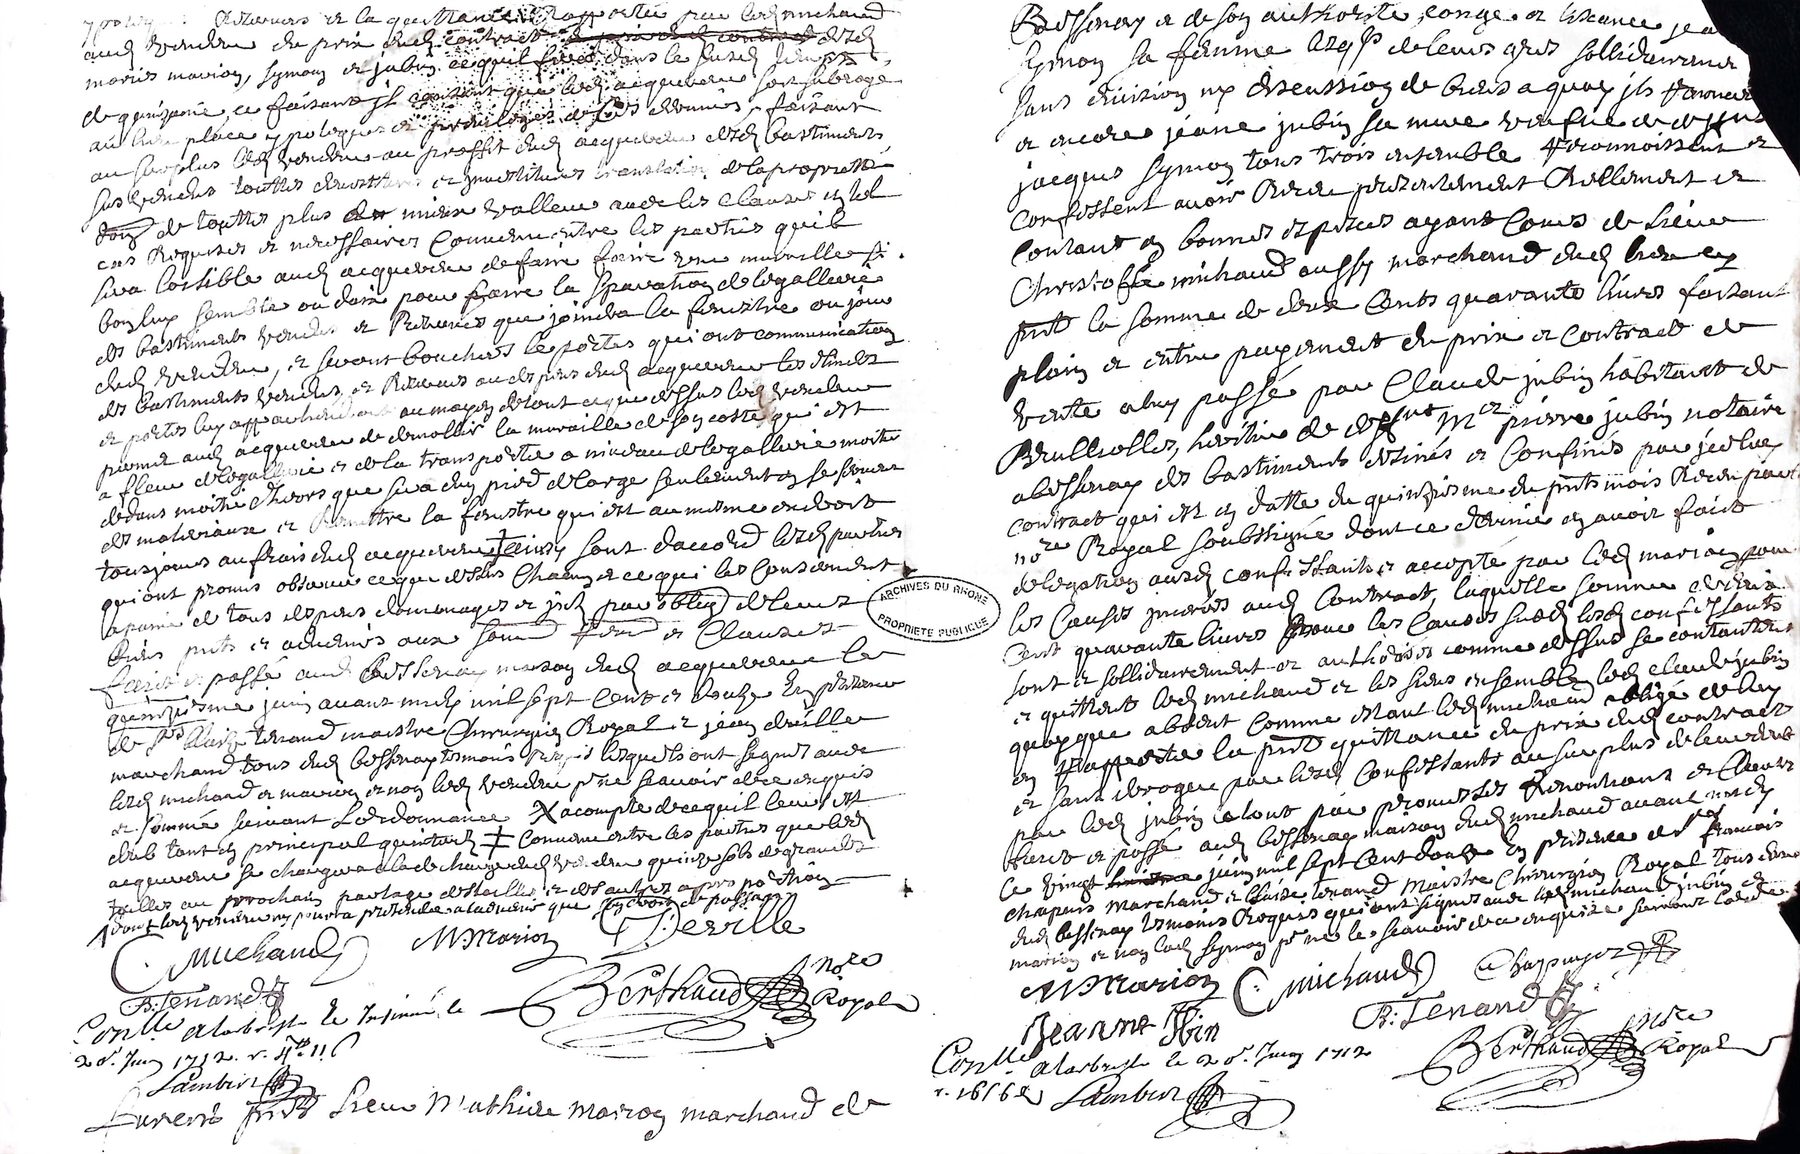 audj vendeur du prix dudj contract
maries marion, symon et jubin ce quil feres dans le susdj temps
de quinzaine ce faisant jl consent que ledj acquereur soit subrogé
au lieu place ypoteques et privileges desdits
au surplus ledj vendeur au proffit dudj acquereur desdj bastiments
sus vendus touttes devettitures et jnvestitures translation de la proprietté
de touttes plus mieux valleur avec les clauses
cas requises et necessaires convenu entre les parties quil
sera loisible audj acquereur de faire faire une muraille si
bon luy semble ou daix pour faire la separation de la gallerie
des bastiments vendus et reserves que joindra la fenestre ou jour
dudj vendeur, et seront bouchés les portes qui ont communication
des bastiments vendus et reserves au despens dudj acquereur
et portes luy appartiendront au moyen de tout ce que dessus ledj vendeur
permet audj acquereur de demollir la muraille de son costé qui est
a fleur de la gallerie et de la transporter a niveau de la gallerie moitié
dedans moitié dhors que sera dun pied de large seulement en se servant
des materiaux et remettre la fenestre qui est au mesme endroit
tousjours au frais dudj acquereur ainsy sont daccord lesdj parties
qui ont promis observer ce que dessus chacun en ce qui les concernent
a peine de tous despens domages et jnts par oblig de leurs
biens pnts et advenirs aux soum renon et clauses
faict et passé audj bessenay maison dudj acquereur le
quinzieme juin avant midy mil sept cent et douze en presence
de sr Blaise tenand maistre chirurgien Royal et jean deville
marchand tous dudj bessenay tesmoins requis lesquels ont signés avec
lesdj michaud et marion et non ledj vendeur pr ne scavoir de ce enquis
et sommé suivant Lordonnance X acompte de ce quil leur est
deub tant en principal quinterets ‡ convenu entre les parties que ledj
acquereur se chargera a la decharge dudj vendeur quinze sols de grandes
tailles au prochain partage des tailles et des autres a proportion
dont ledj vendeur ny pourra pretendre
C Michaud M. Marion J. Deville
B. Tenand Berthaud Nore Royal
Conlle a Larbresle le
20e. Juin 1712. r.
Lambert
Furent pnts Sieur Mathieu Marion marchand de
Bessenay et de son authorité, conge et licence jea
Symon sa femme lesqls de leurs gres sollidairement
sans division ny discussion de biens a quoy jls renonce
et encore jeane jubin sa mere veufve de deffunt
jacques symon tous trois ensemble reconnoissent et
confessent avoir receu presentement reellement et
contant en bonnes espesces ayant cours de sieur
Christofle michaud aussy marchand dudj lieu cy
pnt la somme de deux cents quarante livres faisant
plain et entier payement du prix et contract de
vente a luy passé par Claude jubin habitant de
Brullioles, heritier de deffunt Mre pierre jubin notaire
a bessenay des bastiments desinés et confinés par jceluy
contract qui est en datte du quinzieme du pnts mois Receu par
nore Royal soubssigné dont ce dernier en avoir faict
delegation ausdj confessants et accepté par ledj marion pour
les causes jnserés audj contract, laquelle somme de deux
cent quarante livres pour les causes susdj lesdj confessants
sont et sollidairement et authorisés comme dessus se contantent
et quittent ledj michaud et les siens ensemble ledj claude jubin
quoyque absent comme estant ledj michaud obligé de luy
en rapporter la pnte quittance du prix dudj contract
et sans deroger par lesdj confessants au surplus de leur deub
par ledj jubin le tout par promesses renontions et clauses
faict et passé audj bessenay maison dudj michaud avant midy
ce vingt juin mil sept cent douze en presence de srs francois
chapuis marchand et blaise tenand maistre chirurgien Royal tous deux
dudj bessenay tesmoins requis qui ont signés avec lesdj michaud jubin et
marion et non ladj symon pr ne le scavoir de ce enquise suivant lorde
M. Marion C. Michaud
B. Tenand
Jeanne Jbin Berthaud Nore Royal
Conlle a Larbresle le 20e. Juin 1712
Lambert
ARCHIVES DU RHONE
PROPRIETE PUBLIQUE